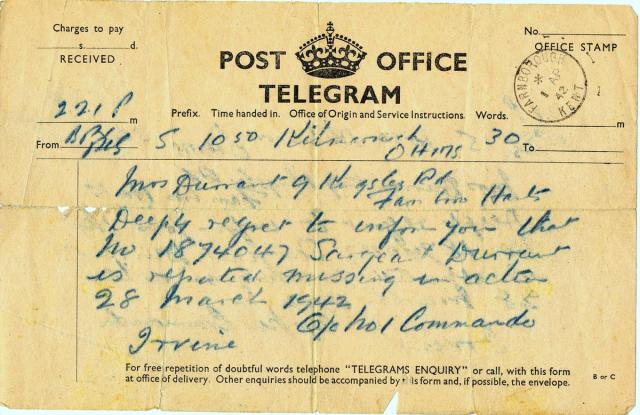 Charges to pay
s. d.
RECEIVED
POST OFFICE
TELEGRAM
No.
OFFICE STAMP
FARNBOROUGH
1 AP
42
KENT
221 P m
Prefix. Time handed in. Office of Origin and Service Instructions. Words.
m
From
S 1050 Kilmarnock OHMS 30
To
Mrs Durrant 9 Kingsley Rd
Farnboro
Deeply regret to inform you that
No 1874047 Sargeant Durrant
is reported missing in action
28 March 1942
No 1 Commando
Irvine
For free repetition of doubtful words telephone "TELEGRAMS ENQUIRY" or call, with this form
at office of delivery. Other enquiries should be accompanied by this form and, if possible, the envelope.
B or C